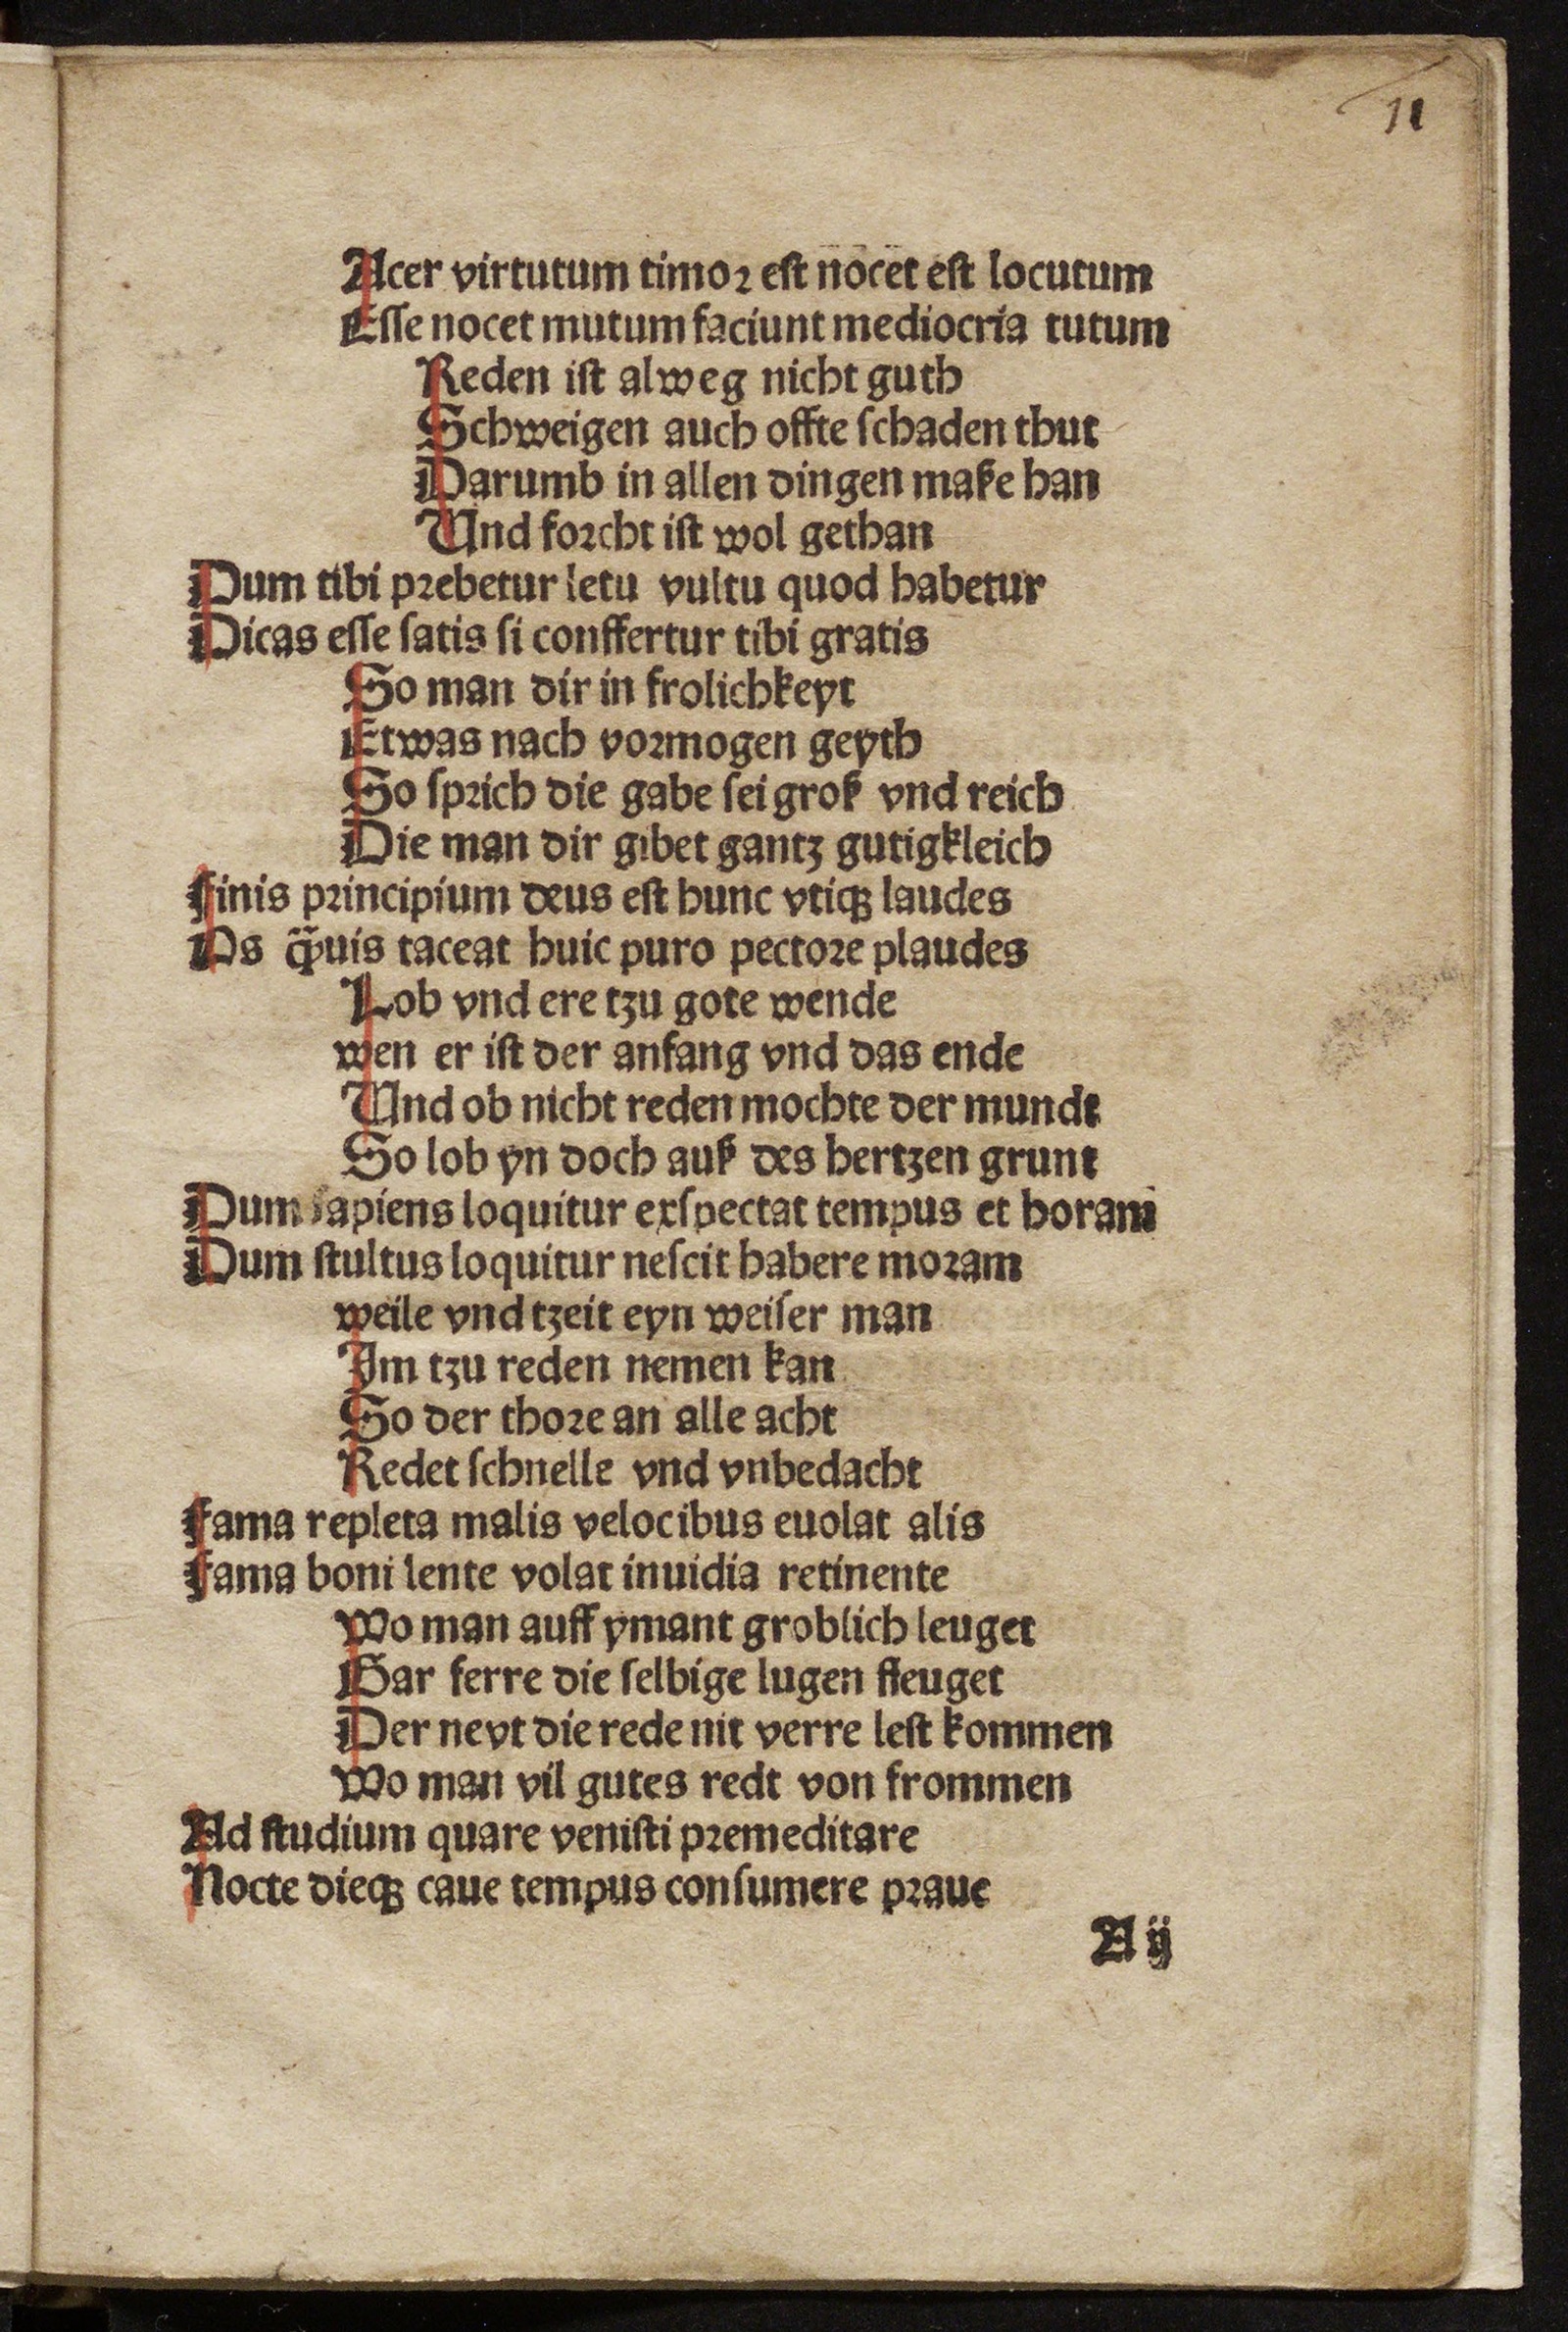 11
Acer virtutum timoꝛ eſt nocet eſt locutum
Eſſe nocet mutum faciunt mediocria tutum
Reden iſt alweg nicht guth
Schweigen auch offte ſchaden thut
Darumb in allen dingen maße han
Und foꝛcht iſt wol gethan
Dum tibi pꝛebetur letu vultu quod habetur
Dicas eſſe ſatis ſi conffertur tibi gratis
So man dir in frolichkeyt
Etwas nach voꝛmogen geyth
So ſpꝛich die gabe ſei groß vnd reich
Die man dir gibet gantz gutigkleich
Finis pꝛincipium deus eſt hunc vtiqꝫ laudes
Os q̈̃uis taceat huic puro pectoꝛe plaudes
Lob vnd ere tzu gote wende
wen er iſt der anfang vnd das ende
Und ob nicht reden mochte der mundt
So lob yn doch auß des hertzen grunt
Dum ſapiens loquitur exſpectat tempus et horam
Dum ſtultus loquitur neſcit habere moꝛam
weile vnd tzeit eyn weiſer man
Im tzu reden nemen kan
So der thoꝛe an alle acht
Redet ſchnelle vnd vnbedacht
Fama repleta malis velocibus euolat alis
Fama boni lente volat inuidia retinente
Wo man auff ymant groblich leuget
Gar ferre die ſelbige lugen fleuget
Der neyt die rede nit verre leſt kommen
Wo man vil gutes redt von frommen
Ad ſtudium quare veniſti pꝛemeditare
Nocte dieqꝫ caue tempus conſumere pꝛaue
A ij